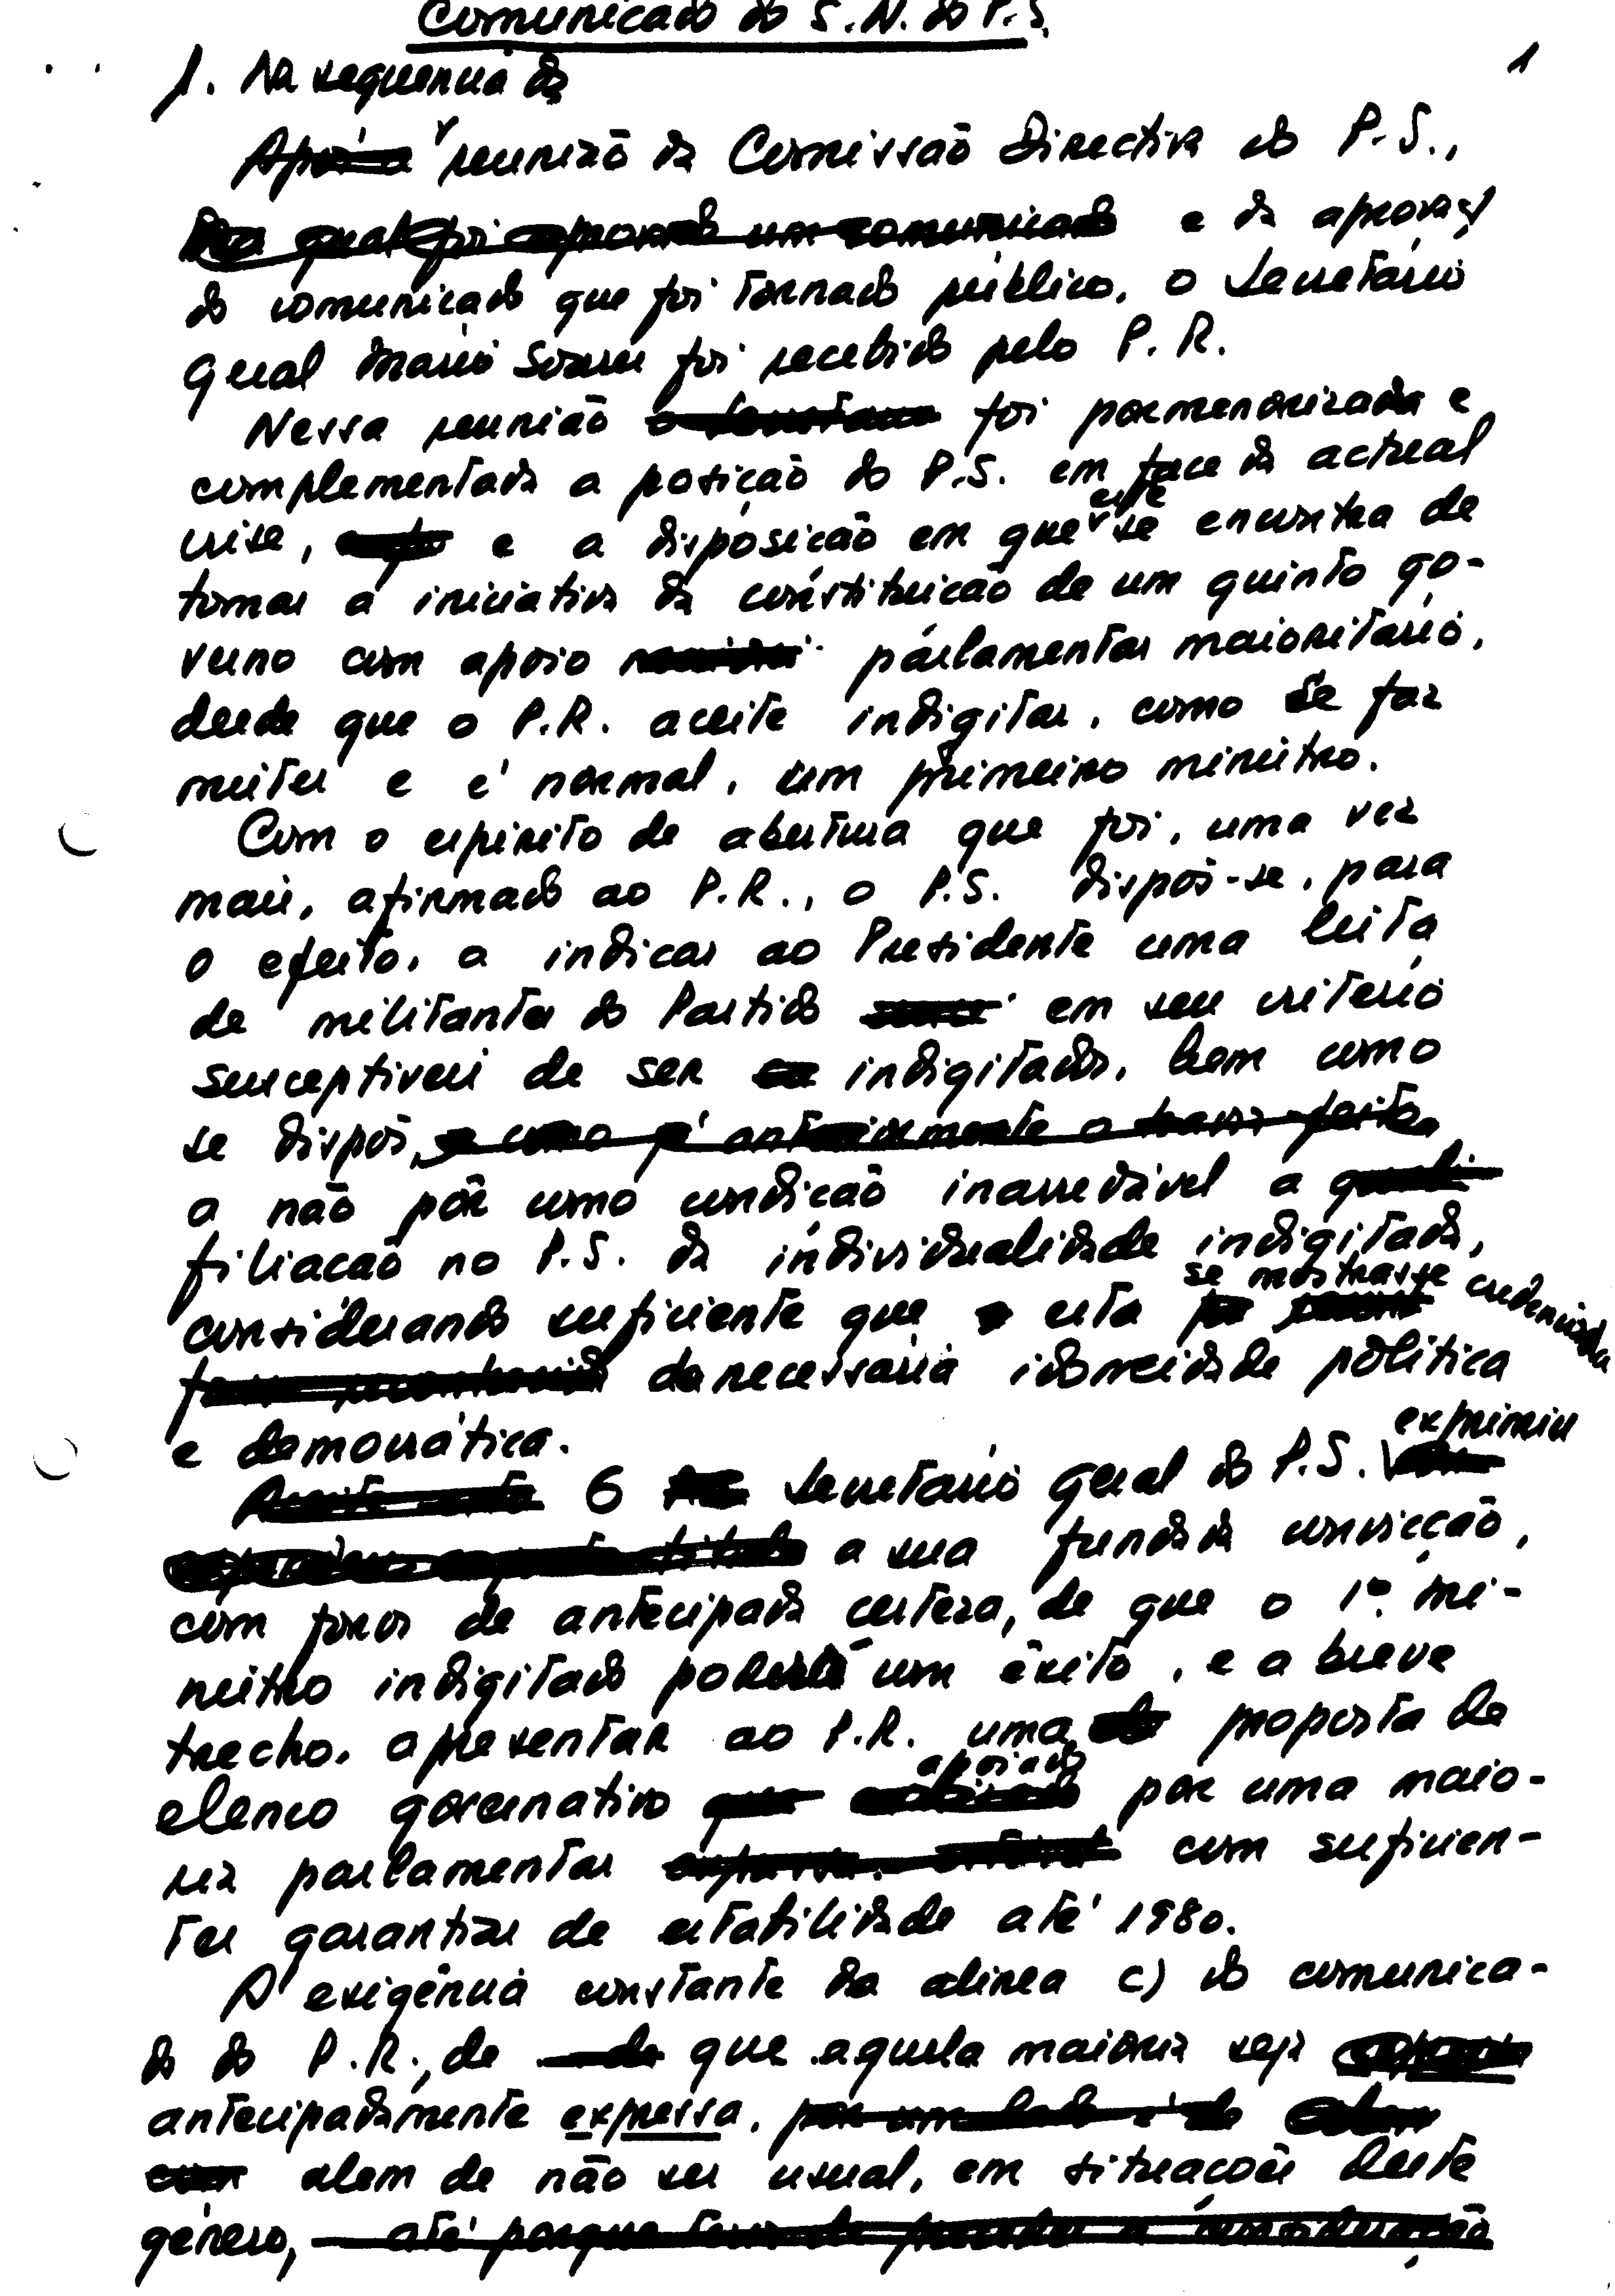 Comunicado do S.N. do P.S.
1
1. Na sequência da
Após a reunião da Comissão Directiva do P.S.,
na qual foi aprovado um comunicado e da aprovação
do comunicado que foi tornado público, o Secretário
Geral Mário Soares foi recebido pelo P.R.
Nessa reunião o Secretário foi pormenorizada e
complementada a posição do P.S. em face da actual
crise, e a disposição em que este se encontra de
tomar a iniciativa da constituição de um quinto go-
verno com apoio parlamentar maioritário,
desde que o P.R. aceite indigitar, como se faz
mister e é normal, um primeiro ministro.
Com o espírito de abertura que foi, uma vez
mais, afirmado ao P.R., o P.S. dispôs-se, para
o efeito, a indicar ao Presidente uma lista
de militantes do Partido em seu critério
susceptíveis de ser indigitados, bem como
se dispôs, e como já anteriormente o havia feito,
a não pôr como condição inarredável a
filiação no P.S. da individualidade indigitada,
considerando suficiente que esta se mostrasse credenciada
fosse reconhecida da necessária idoneidade política
e democrática.
O Secretário Geral do P.S. exprimiu
a sua fundada convicção,
com foros de antecipada certeza, de que o 1º. mi-
nistro indigitado poderá com êxito, e a breve
trecho, apresentar ao P.R. uma proposta de
elenco governativo que apoiado por uma maio-
ria parlamentar expressa, estável com suficien-
tes garantias de estabilidade até 1980.
A exigência constante da alínea c) do comunica-
do do P.R., de que aquela maioria seja expressa
antecipadamente expressa, por um lado é de
com alem de não ser usual, em situações deste
género, até porque teria de proceder à consideração